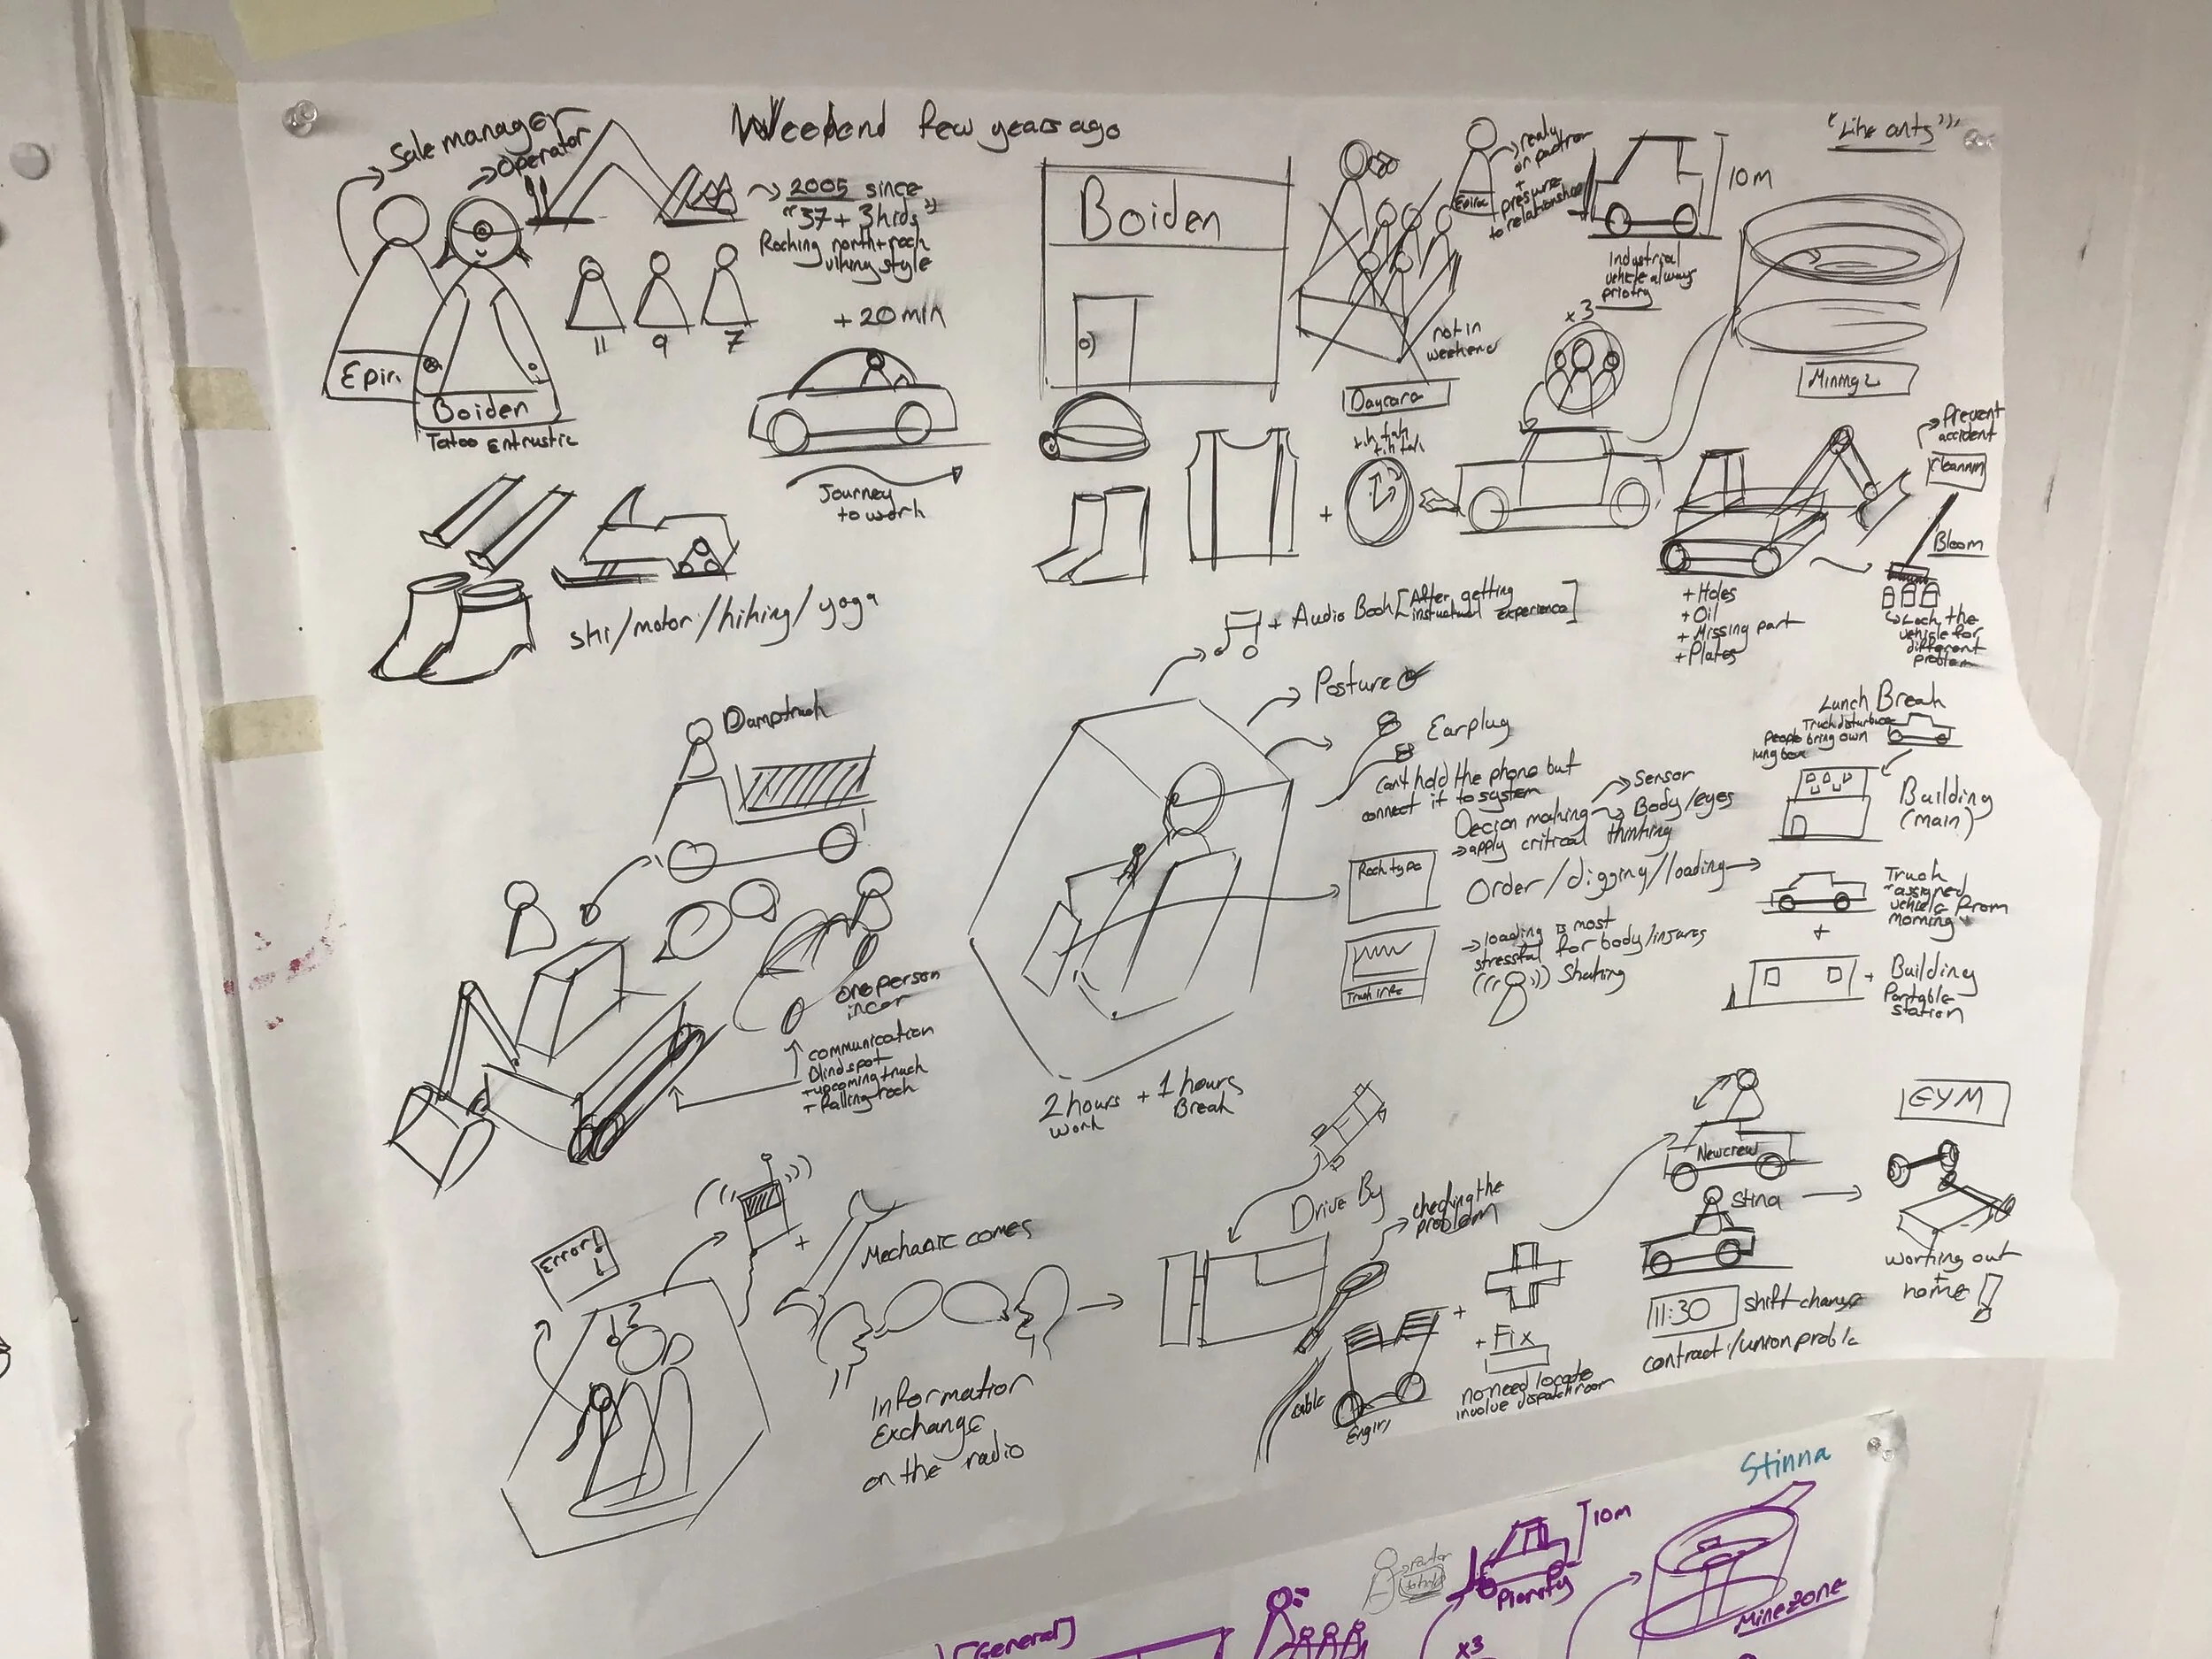 Sale manager
Operator
Weekend few years ago
2005 since
"37 + 3 kids"
Rocking north + rock
viking style
11
9
7
Epir.
Boiden
Tatoo Entrustic
+ 20 min
Journey
to work
ski/motor/hiking/yoga
Boiden
not in
weekend
Daycara
Epiroc
realy
on partron
+
presure
to relationshee
10M
Industrial
vehicle always
priotry
x3
"Like ants"
Prevent
accident
Bloom
+ Holes
+ Oil
+ Missing part
+ Plates
Lock the
vehicle for
different
problem
+
+ Audio Book [After getting
instructual experience]
Posture
Earplug
Can't hold the phone but
connect it to system
Sensor
Decion making
Body/eyes
apply critical thinking
Rock type
Order/digging/loading
Truck info
loading is most
stressful for body/injures
Shaking
2 hours
work
+ 1 hours
Break
Damptruck
one person
in car
communication
Blindspot
+ upcoming truck
+ falling rock
Lunch Break
Truck disturbuce
People bring own
lung box
Building
(main)
Truck
"assigned
vehicle from
morning"
+
+ Building
Portable
station
Error!
+
Mechanic comes
Information
Exchange
on the radio
Drive By
checking the
problem
cable
Engin
+
+ Fix
no need locate
involve dispatch room
New crew
Stina
11:30 shift change
contract/union proble
GYM
working out
+
home
Stinna
10m
Piority
Minezone
[General]
x3